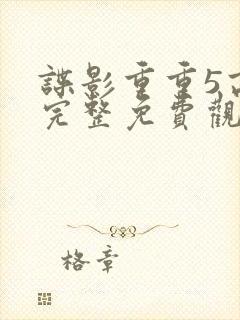 諜影重重5高
完整免費觀
格章